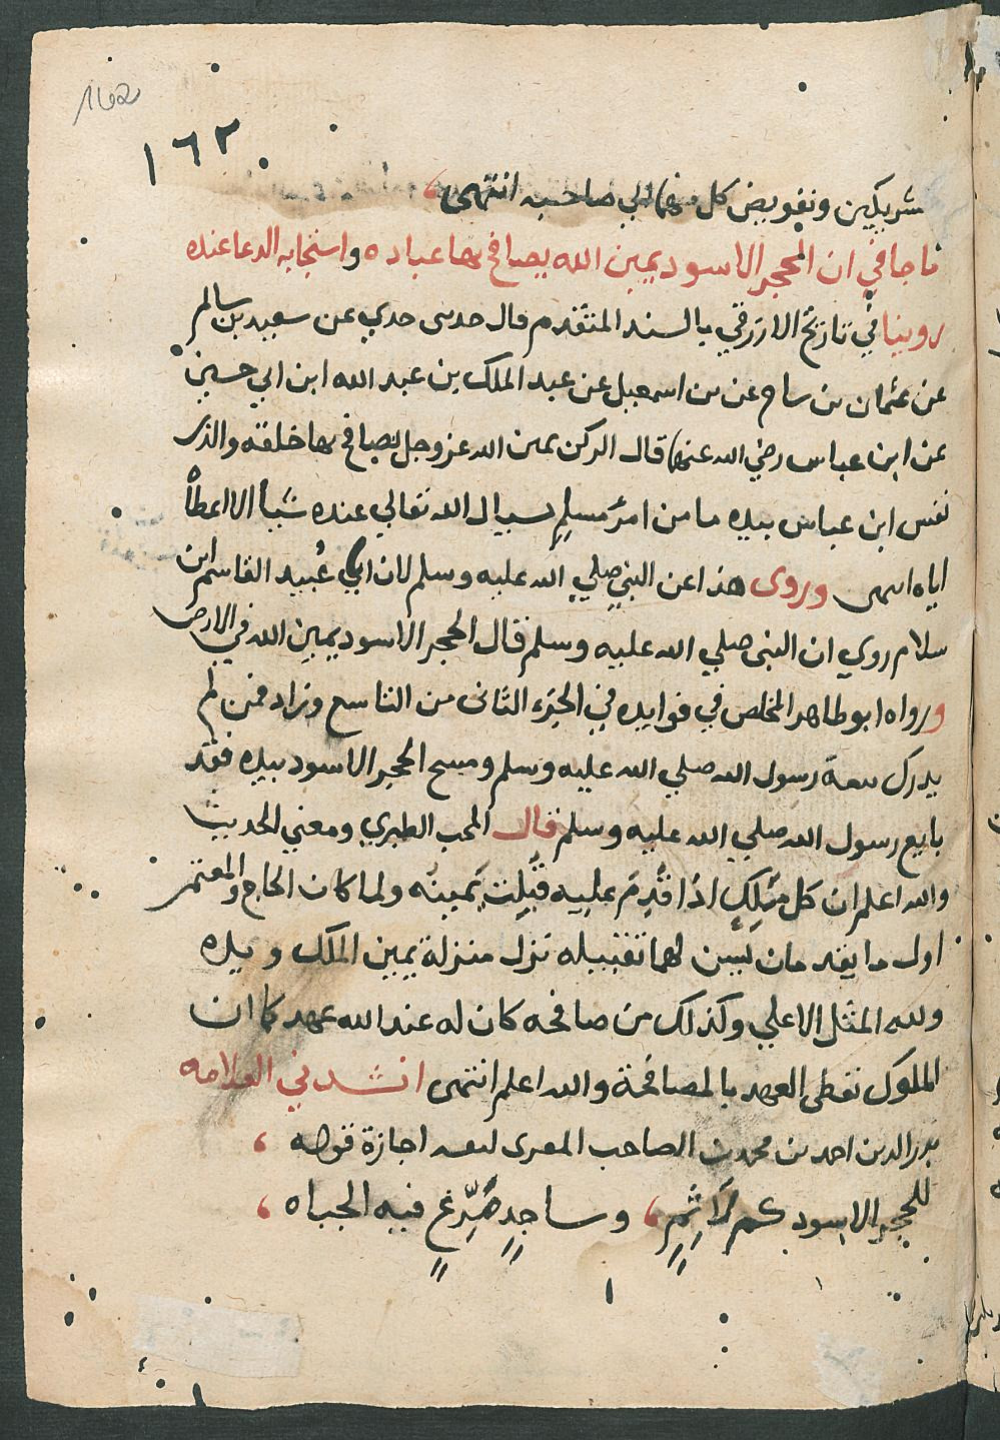 ١٦٢
شريكين وتفويض كل منهما الي صاحبه انتهى
ما جا في ان الحجر الاسود يمين الله يصافح بها عباده واستجابه الدعا عنده
روينا في تاريخ الازرقي بالسند المتقدم قال حدثني جدي عن سعيد بن سالم
عن عثمان بن ساج عن بن اسمعيل عن عبد الملك بن عبد الله ابن ابي حسين
عن ابن عباس رضي الله عنهما قال الركن يمين الله عز وجل يصافح بها خلقه والذى
نفس ابن عباس بيده ما من امرء مسلم يسال الله تعالي عنده شيأ الا اعطاه
اياه انتهى وروى هذا عن النبي صلي الله عليه وسلم لان ابي عُبيد القاسم ابن
سلام روي ان النبى صلي الله عليه وسلم قال الحجر الاسود يمين الله في الارض
ورواه ابو طاهر المخلص في فوايده في الجزء الثانى من التاسع وزاد فمن لم
يدرك بيعة رسول الله صلي الله عليه وسلم ومسح الحجر الاسود بيده فقد
بايع رسول الله صلي الله عليه وسلم قال المحب الطبري ومعني الحديث
والله اعلم ان كل مَلِكٍ اذا قُدِمَ عليه قُبِّلت يَمينه ولما كان الحاج والمعتمر
اول ما يقدمان يسن لهما تقبيله نزل منزلة يمين الملك ويده
ولله المثل الاعلي وكذلك من صافحه كان له عند الله عهد كما ان
الملوك تعطى العهد بالمصافحة والله اعلم انتهى انشدني العلامه
بدر الدين احمد بن محمد بن الصاحب المصرى لنفسه اجازة قوله
للحجر الاسود كم لَاثِمٍ وساجدٍ مَرَّغ فيه الجباه